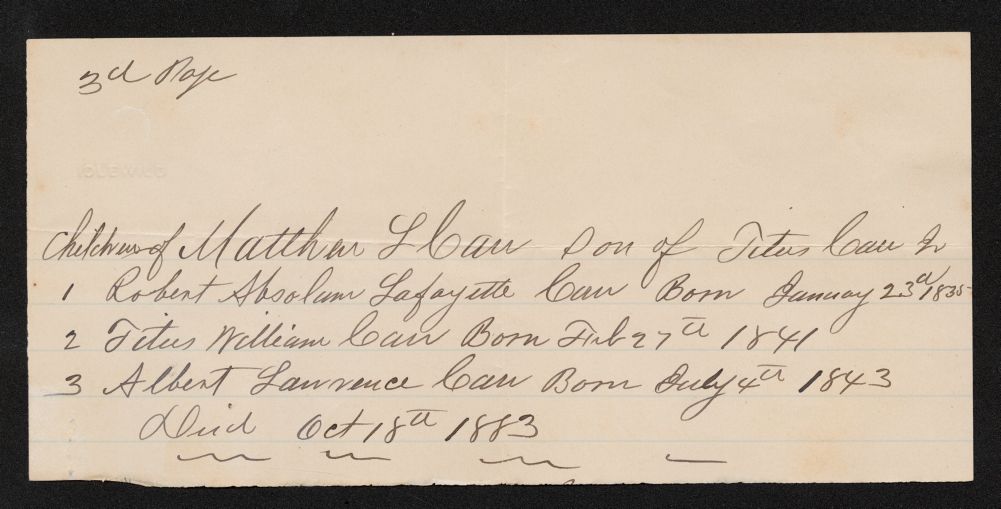 3d Page
IDLEWILD
Children of Matthew L Carr Son of Titus Carr Jr
1 Robert Absolam Lafayette Carr Born January 23d 1835
2 Titus William Carr Born Feb 27th 1841
3 Albert Lawrence Carr Born July 4th 1843
Died Oct 18th 1883